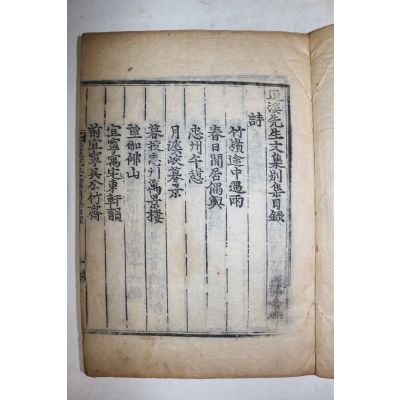 退溪先生文集別集目錄
詩
竹嶺途中遇雨
春日閒居偶興
忠州午憩
月瀨峽暮景
暮投忠州萬景樓
望伽倻山
宜寧寓宅東軒韻
前宜寧吳公竹齋